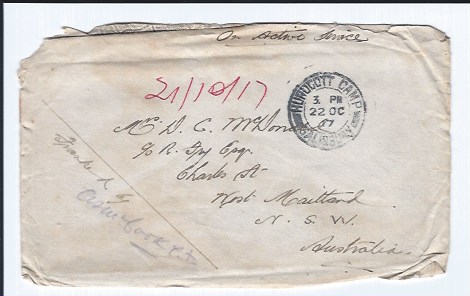 On Active Service
21/10/17
HURDCOTT CAMP
3. PM
22 OC
17
SALISBURY
Mrs D. C. McDon
c/o R. Esq.
Charles St
West Maitland
N. S. W.
Australia